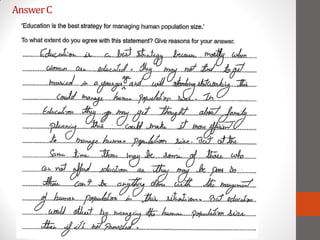 Answer C
'Education is the best strategy for managing human population size.'
To what extent do you agree with this statement? Give reasons for your answer.
Education is a best strategy because mostly when
women are educated. they may not tend to get
married in a younger age and will this
could manage human population size. In
Education they may get thought about family
planning this could make it more efficient
to manage human population size. But at the
same time there may be some of those who
can not afford education as they may be poor so
there can't be anything done with the management
of human population in this situation. But education
would affect by managing the human population size
then if it's not provided.